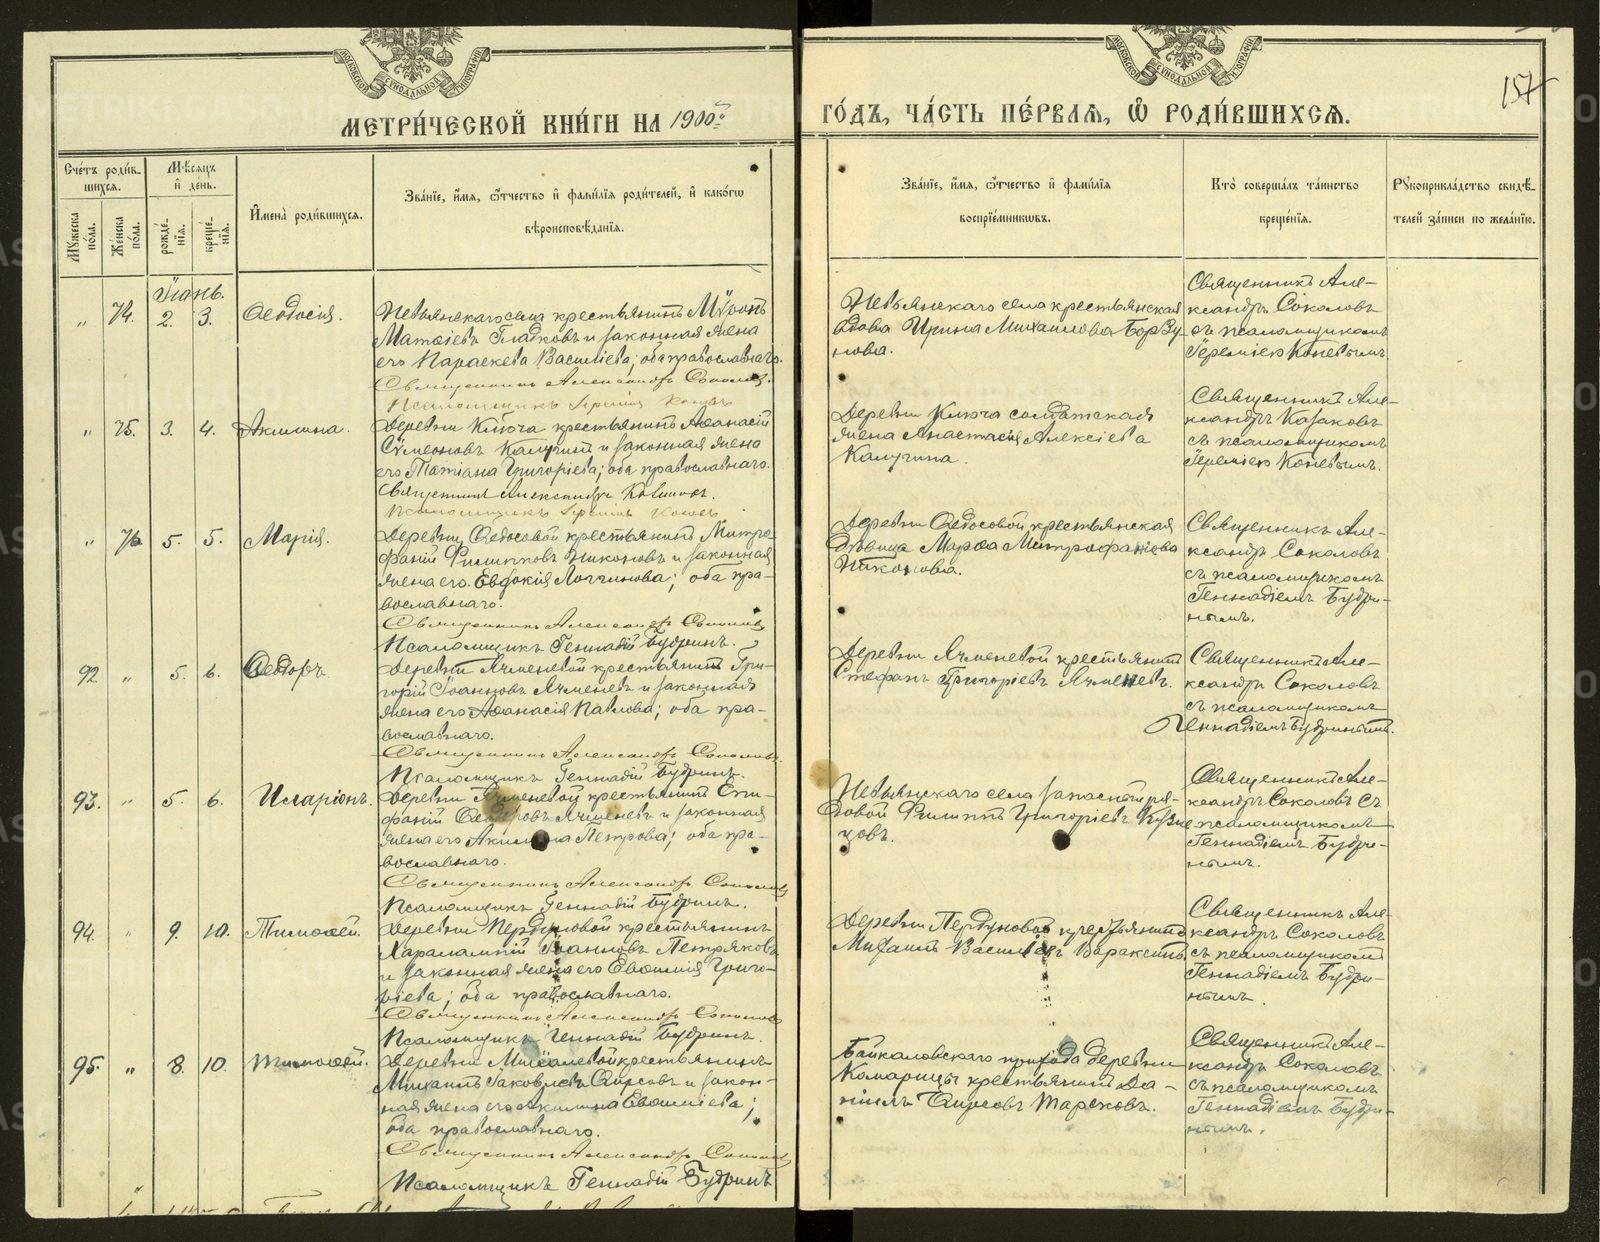 МОСКОВСКОЙ СѴНОДАЛЬНОЙ ТИПОГРАФІИ
МОСКОВСКОЙ СѴНОДАЛЬНОЙ ТИПОГРАФІИ
157
МЕТРИ́ЧЕСКОЙ КНИ́ГИ НА 1900й
ГО́ДЪ, ЧА́СТЬ ПЕ́РВАѦ, Ѽ РОДИ́ВШИХСѦ.
Сче́тъ роди́в-
шихся.
Мѣ́сяцъ
и҆ день.
Мꙋ́жеска по́ла.
Же́нска по́ла.
рожде́-нїя.
креще́-нїя.
И҆мена̀ роди́вшихся.
Зва́нїе, и҆́мя, ѻ҆́тчество и҆ фами́лїя роди́телей, и҆ како́гѡ
вѣроисповѣ́данїя.
Зва́нїе, и҆́мя, ѻ҆́тчество и҆ фами́лїя
воспрїе́мникѡвъ.
Кто̀ соверша́лъ та́инство
креще́нїя.
Рꙋкоприкла́дство свидѣ́-
телей за́писи по жела́нїю.
Іюнь.
" 74. 2. 3. Ѳеодосія.
Невьянскаго села крестьянинъ Мѵронъ
Матѳіевъ Гладковъ и законная жена
его Параскева Василіева; оба православнаго.
Священникъ Александръ Соколовъ.
Псаломщикъ Іеремія Коневъ
Невьянскаго села крестьянская
вдова Ирина Михаилова Борзу-
нова.
Священникъ Але-
ксандръ Соколовъ
съ псаломщикомъ
Іереміею Коневымъ.
" 75. 3. 4. Акилина.
Деревни Ключа крестьянинъ Аѳанасій
Сѵмеоновъ Калугинъ и законная жена
его Татіана Григоріева; оба православнаго.
Священникъ Александръ
Псаломщикъ Іеремія Коневъ
Деревни Ключа солдатская
жена Анастасія Алексіева
Калугина.
Священникъ Але-
ксандръ Казаковъ
съ псаломщикомъ
Іереміею Коневымъ.
" 76. 5. 5. Марія.
Деревни Ѳедосовой крестьянинъ Митро-
фаній Филипповъ Никоновъ и законная
жена его Евдокія Логгинова; оба пра-
вославнаго.
Священникъ Александръ Соколовъ
Псаломщикъ Геннадій Будринъ.
Деревни Ѳедосовой крестьянская
дѣвица Марѳа Митрофаніева
Никонова.
Священникъ Але-
ксандръ Соколовъ
съ псаломщикомъ
Геннадіемъ Будри-
нымъ.
92 " 5. 6. Ѳеодоръ.
Деревни Ячменевой крестьянинъ Гри-
горій Іоанновъ Ячменевъ и законная
жена его Аѳанасія Павлова; оба пра-
вославнаго.
Священникъ Александръ Соколовъ.
Псаломщикъ Геннадій Будринъ.
Деревни Ячменевой крестьянинъ
Стефанъ Григоріевъ Ячменевъ.
Священникъ Але-
ксандръ Соколовъ
съ псаломщикомъ
Геннадіемъ Будринымъ.
93. " 5. 6. Иларіонъ.
Деревни Ячменевой крестьянинъ Епи-
фаній Ѳеодоровъ Ячменевъ и законная
жена его Акилина Петрова; оба пра-
вославнаго.
Священникъ Александръ Соколовъ
Псаломщикъ Геннадій Будринъ.
Невьянскаго села запасный ря-
довой Филиппъ Григоріевъ Кузне-
цовъ.
Священникъ Але-
ксандръ Соколовъ съ
псаломщикомъ
Геннадіемъ Будри-
нымъ.
94. " 9. 10. Тимоѳей.
Деревни Пердуновой крестьянинъ
Харалампій Іоанновъ Петряковъ
и законная жена его Евѳимія Григо-
ріева; оба православнаго.
Священникъ Александръ Соколовъ
Псаломщикъ Геннадій Будринъ.
Деревни Пердуновой крестьянинъ
Михаилъ Васильевъ Вараксинъ.
Священникъ Але-
ксандръ Соколовъ
съ псаломщикомъ
Геннадіемъ Будри-
нымъ.
95. " 8. 10. Тимоѳей.
Деревни крестьянинъ
Михаилъ Іаковлевъ и закон-
ная жена его Акилина Евѳиміева;
оба православнаго.
Священникъ Александръ Соколовъ
Псаломщикъ Геннадій Будринъ
Байкаловскаго прихода деревни
Комарицы крестьянинъ Да-
ніилъ
Священникъ Але-
ксандръ Соколовъ
съ псаломщикомъ
Геннадіемъ Будри-
нымъ.